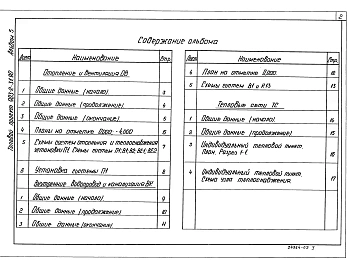 2
Содержание альбома
Альбом 5
Лист
Наименование
Стр.
Отопление и вентиляция ОВ
1 Общие данные (начало) 3
2 Общие данные (продолжение) 4
3 Общие данные (окончание) 5
4 Планы на отметке 0,000; -4,000 6
5 Схемы систем отопления и теплоснабжения
установки П1. Схемы систем П1, В1, В2, ВЕ1, ВЕ2 7
6 Установка системы П1 8
Внутренние водопровод и канализация ВК
1 Общие данные (начало) 9
2 Общие данные (продолжение) 10
3 Общие данные (окончание) 11
Наименование
Стр.
4 План на отметке 0,000
5 Схемы систем
Тепловые сети ТС
1 Общие данные (начало)
2 Общие данные (продолжение) 15
3 Индивидуальный тепловой пункт.
План. Разрез 1-1. 16
4 Индивидуальный тепловой пункт.
Схема узла теплоснабжения. 17